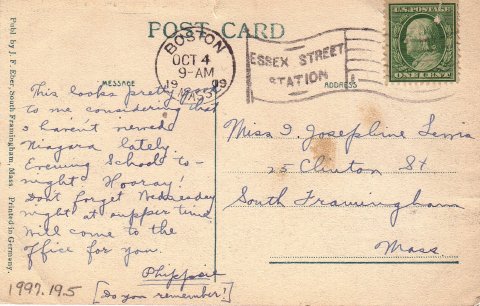 POST CARD
Publ by J. F. Eber, South Framingham, Mass. Printed in Germany.
MESSAGE
ADDRESS
BOSTON
OCT 4
9-AM
1909
MASS.
ESSEX STREET
STATION
U.S. POSTAGE
ONE CENT
This looks pretty good
to me considering that
I haven't viewed
Niagara lately.
Evening School to-
night. Hooray!
Don't forget Wednesday
night at supper time.
Will come to the
office for you.
[Do you remember?]
Miss I. Josephine Lewis
25 Clinton St
South Framingham
Mass.
1997.19.5